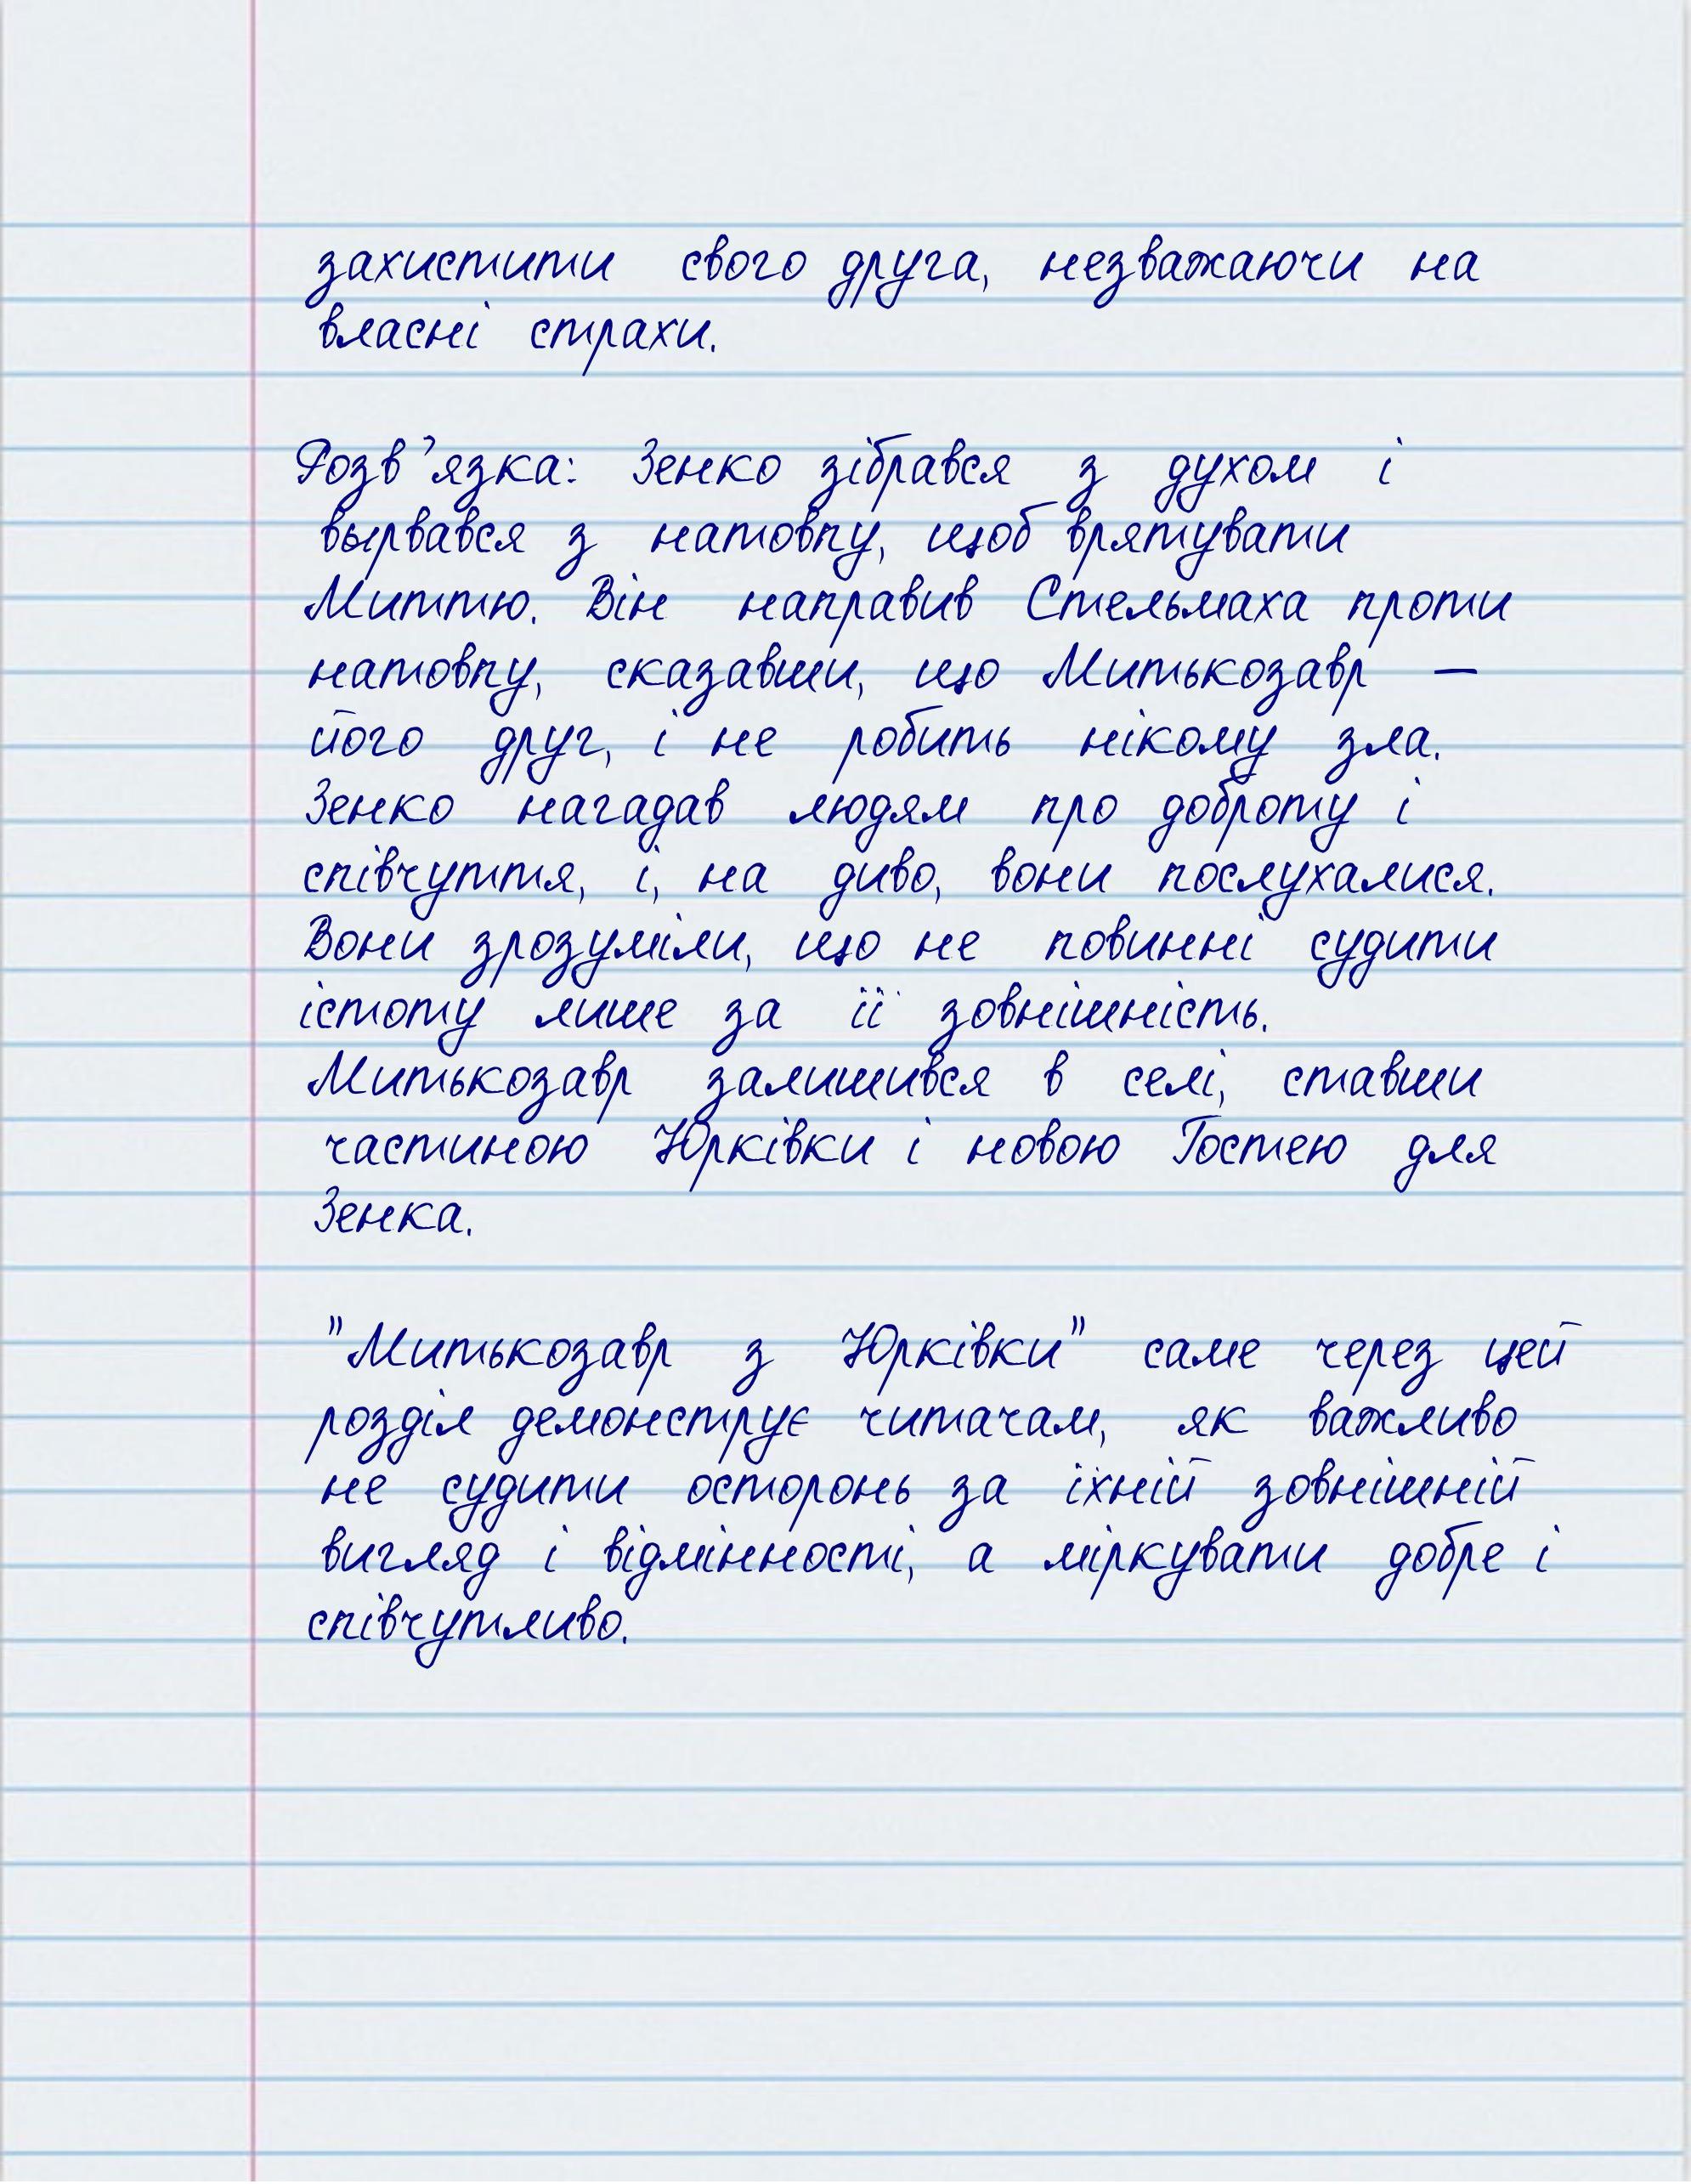 захистити свого друга, незважаючи на
власні страхи.
Розв'язка: Зенко зібрався з духом і
вырвався з натовпу, щоб врятувати
Миттю. Він направив Стельмаха проти
натовпу, сказавши, що Митькозавр —
його друг, і не робить нікому зла.
Зенко нагадав людям про доброту і
співчуття, і, на диво, вони послухалися.
Вони зрозуміли, що не повинні судити
істоту лише за її зовнішність.
Митькозавр залишився в селі, ставши
частиною Юрківки і новою Гостею для
Зенка.
"Митькозавр з Юрківки" саме через цей
розділ демонструє читачам, як важливо
не судити осторонь за їхній зовнішній
вигляд і відмінності, а міркувати добре і
співчутливо.